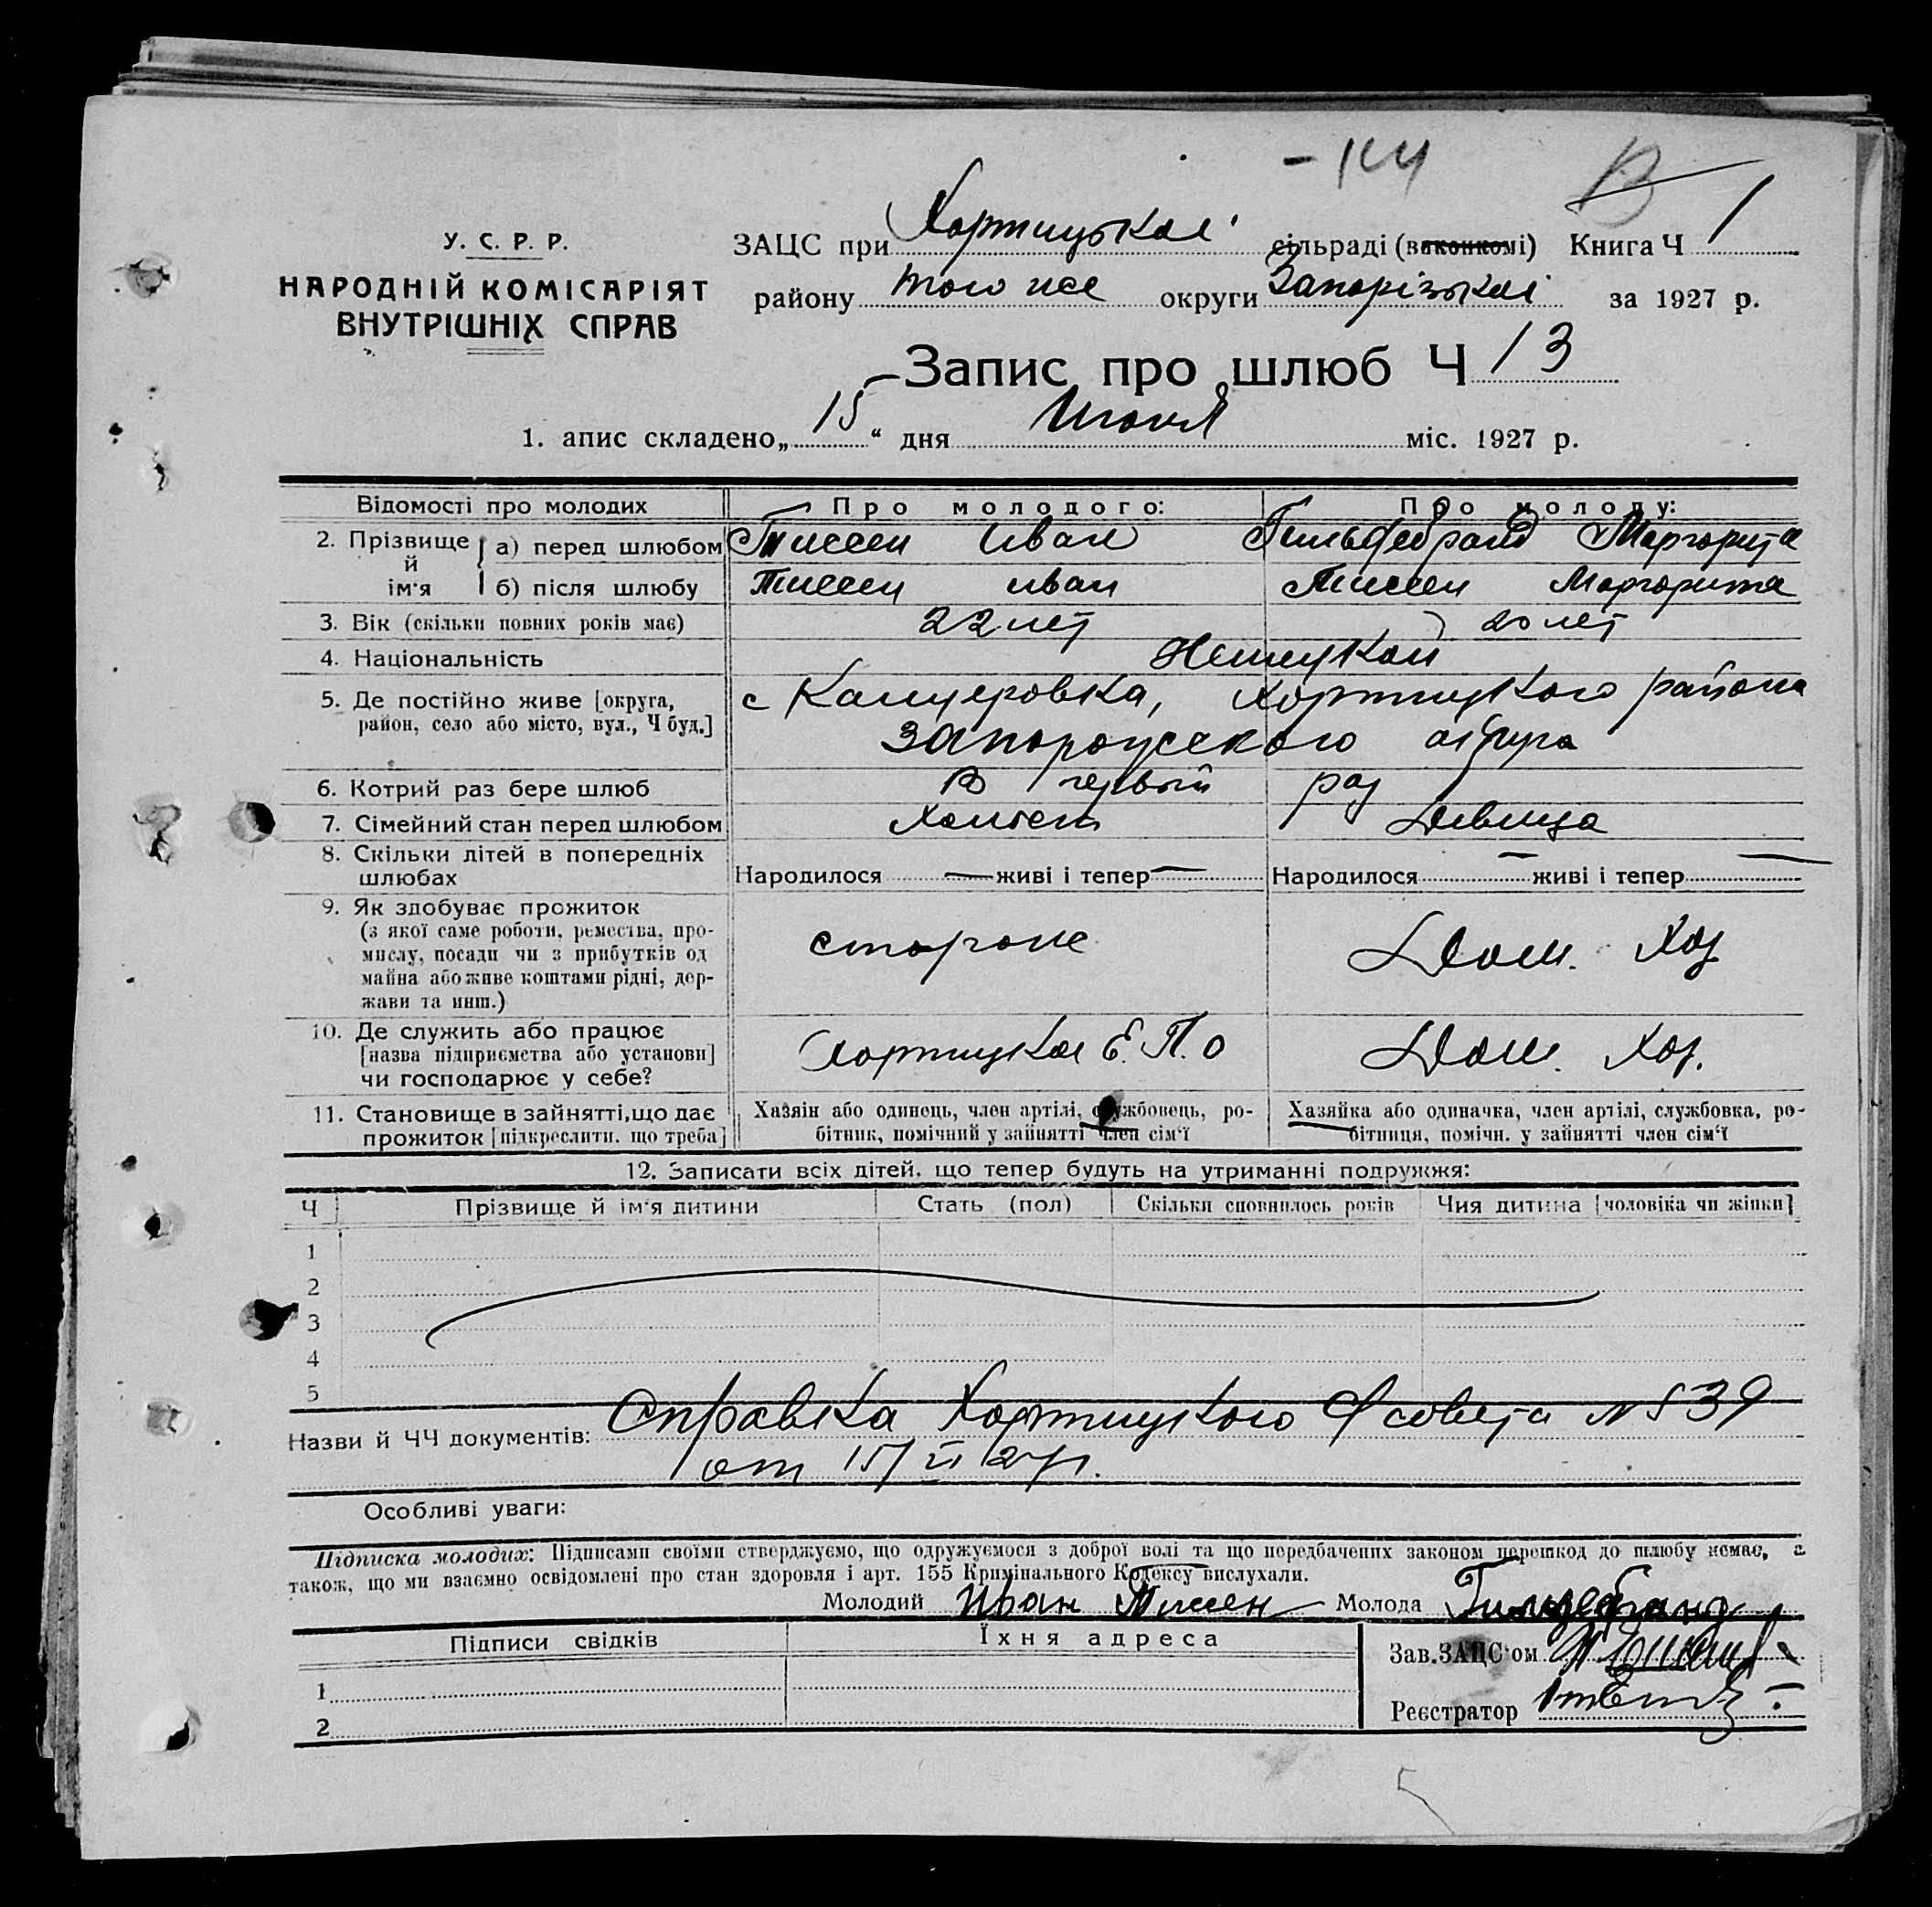 -144 В
У. С. Р. Р.
НАРОДНІЙ КОМІСАРІЯТ
ВНУТРІШНІХ СПРАВ
ЗАЦС при Хортицької сільраді (виконкомі) Книга Ч 1
району того же округи Запорізької за 1927 р.
Запис про шлюб Ч 13
1. апис складено „15“ дня Июня міс. 1927 р.
Відомості про молодих Про молодого: Про молоду:
2. Прізвище й ім'я а) перед шлюбом Тиссен Иван Гильдебранд Маргарита
б) після шлюбу Тиссен Иван Тиссен Маргарита
3. Вік (скільки повних років має) 22 лет 20 лет
4. Національність
5. Де постійно живе [округа, район, село або місто, вул., Ч буд.] с Канцеровка, Хортицкого района
Запорожского округа
6. Котрий раз бере шлюб В первый раз
7. Сімейний стан перед шлюбом Холост Девица
8. Скільки дітей в попередніх шлюбах Народилося — живі і тепер — Народилося — живі і тепер —
9. Як здобуває прожиток
(з якої саме роботи, ремества, про-
мислу, посади чи з прибутків од
майна або живе коштами рідні, дер-
жави та инш.)
Дом. Хоз
10. Де служить або працює
[назва підприємства або установи]
чи господарює у себе?
Хортицкое Е.П.о Дом. Хоз.
11. Становище в зайнятті, що дає
прожиток [підкреслити. що треба]
Хазяін або одинець, член артілі, службовець, ро-
бітник, помічний у зайнятті член сім'ї
Хазяйка або одиначка, член артілі, службовка, ро-
бітниця, помічн. у зайнятті член сім'ї
12. Записати всіх дітей. що тепер будуть на утриманні подружжя:
Ч Прізвище й ім'я дитини Стать (пол) Скільки сповнилось років Чия дитина [чоловіка чи жінки]
1
2
3
4
5
Назви й ЧЧ документів: Справка Хортицкого совета № 539
от 15/VI 27 г.
Особливі уваги:
Підписка молодих: Підписами своїми стверджуємо, що одружуємося з доброї волі та що передбачених законом перешкод до шлюбу немає, а
також, що ми взаємно освідомлені про стан здоровля і арт. 155 Кримінального Кодексу вислухали.
Молодий Иван Тиссен Молода Гильдебранд
Підписи свідків Їхня адреса
Зав. ЗАЦС'ом
1
Реєстратор
2